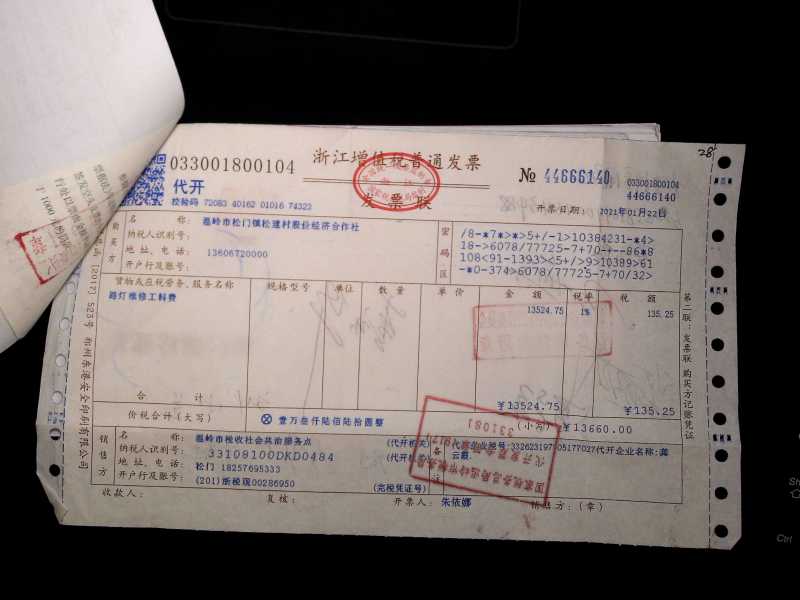 28
033001800104
浙江增值税普通发票
№ 44666140
033001800104
44666140
代开
发票联
校验码 72083 40162 01016 74322
开票日期: 2021年01月22日
购买方
名 称: 温岭市松门镇松建村股份经济合作社
纳税人识别号:
地 址、电 话: 13606720000
开户行及账号:
密码区
/8-*7*>*>5+/-1>10384231-*4>
18->6078/77725-7+70-+--86*8
108<91-1393><5+/>9>10389>61
-*0-374>6078/77725-7+70/32>
货物或应税劳务、服务名称 规格型号 单位 数 量 单 价 金 额 税率 税 额
路灯维修工料费 13524.75 1% 135.25
合 计 ¥13524.75 ¥135.25
价税合计(大写) ⊗ 壹万叁仟陆佰陆拾圆整 (小写) ¥13660.00
销售方
名 称: 温岭市税收社会共治服务点 (代开机关)
纳税人识别号: 33108100DKD0484 (代开机关
地 址、电 话: 松门 18257695333
开户行及账号: (201)浙税现00286950 (完税凭证号)
备注
代开企业税号:33262319705177027代开企业名称:龚
云最
收款人: 复核: 开票人: 朱依娜 销售方:(章)
第二联:发票联 购买方记账凭证
[2017] 523号 郑州东港安全印刷有限公司
331081
Ctrl